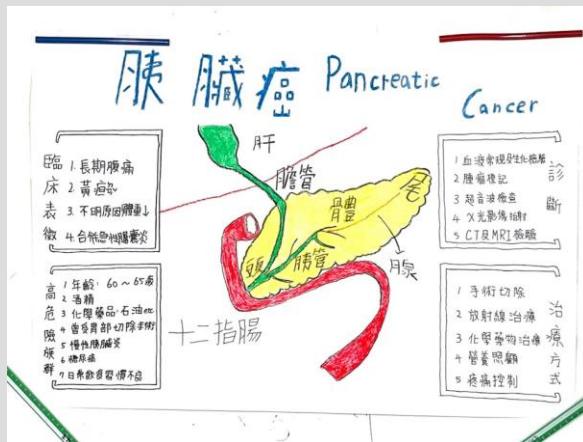 胰臟癌 Pancreatic Cancer
臨床表徵
1. 長期腹痛
2. 黃疸
3. 不明原因體重↓
4. 合併急性膽囊炎
高危險族群
1 年齡: 60~65歲
2 酒精
3 化學藥品、石油etc
4 曾受胃部切除手術
5 慢性胰臟炎
6 糖尿病
7 日常飲食習慣不良
肝
膽管
頭
體
尾
胰管
腺泉
十二指腸
診斷
1 血液常規及生化檢驗
2 腫瘤標記
3 超音波檢查
4 X光影像拍射
5 CT及MRI檢驗
治療方式
1 手術切除
2 放射線治療
3 化學藥物治療
4 營養照顧
5 疼痛控制